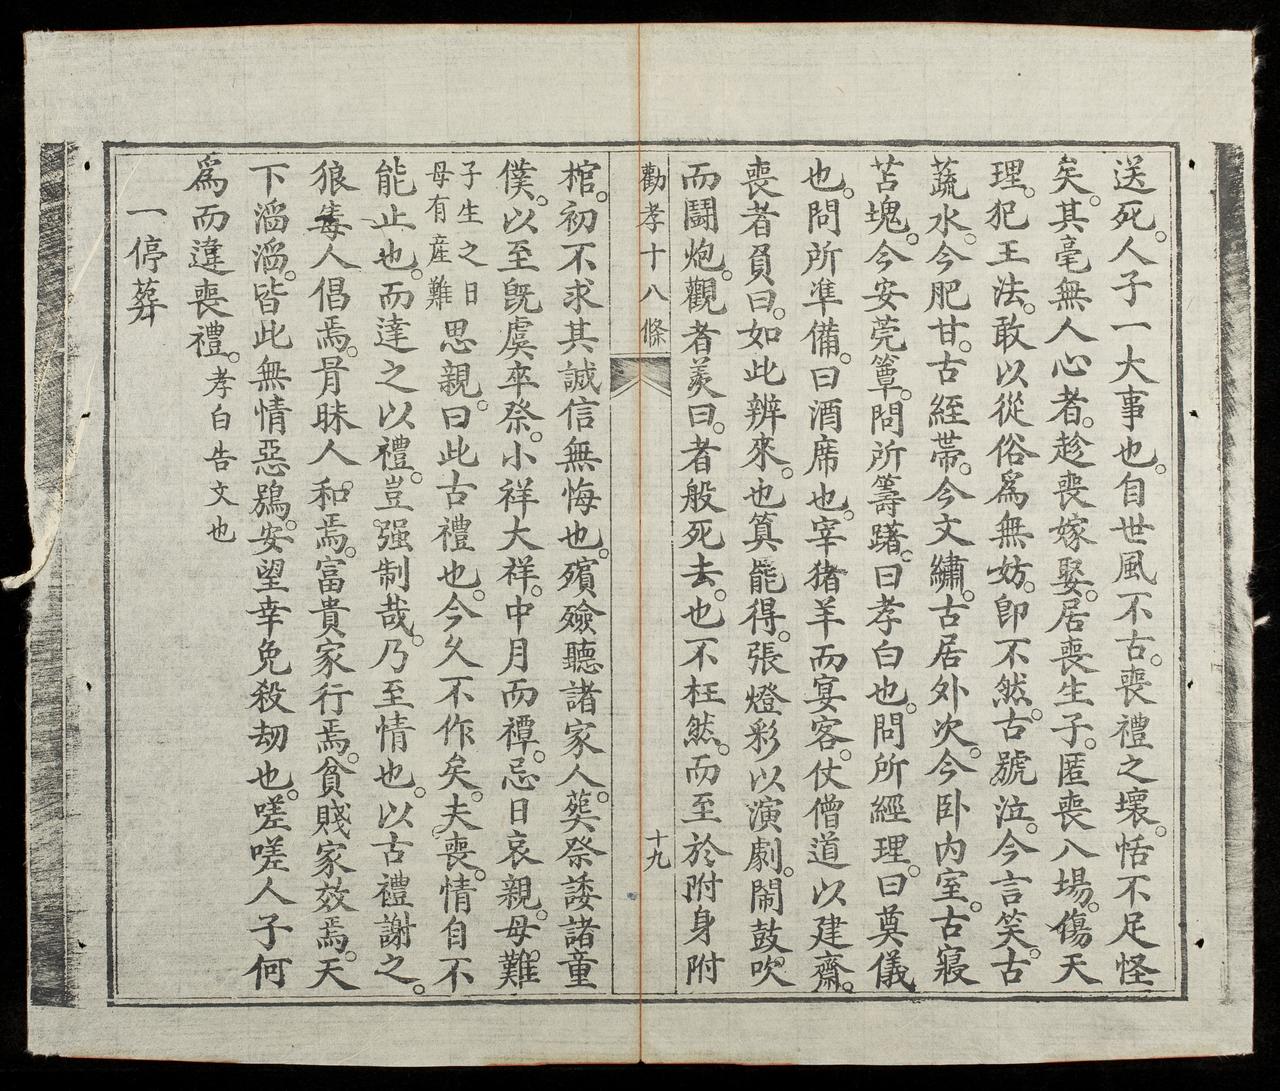 送死。人子一大事也。自世風不古。喪禮之壞。恬不足怪
矣。其毫無人心者。趁喪嫁娶。居喪生子。匿喪入場。傷天
理。犯王法。敢以從俗爲無妨。卽不然。古號泣。今言笑。古
蔬水。今肥甘。古絰帶。今文繡。古居外次。今卧內室。古寢
苫塊。今安莞簟。問所籌躇。曰孝白也。問所經理。曰奠儀
也。問所準備。曰酒席也。宰猪羊而宴客。仗僧道以建齋。
喪者負曰。如此辨來。也算能得。張燈彩以演劇。鬧鼓吹
而鬪炮。觀者羨曰。者般死去。也不枉然。而至於附身附
勸孝十八條
十九
棺。初不求其誠信無悔也。殯殮聽諸家人。葬祭諉諸童
僕。以至旣虞卒祭。小祥大祥。中月而禫。忌日哀親。母難
子生之日母有產難思親。曰此古禮也。今久不作矣。夫喪。情自不
能止也。而達之以禮。豈强制哉。乃至情也。以古禮謝之。
狼毒人倡焉。骨昧人和焉。富貴家行焉。貧賤家效焉。天
下滔滔。皆此無情惡鴞。安望幸免殺刼也。嗟嗟人子何
爲而違喪禮。孝白告文也
一停葬